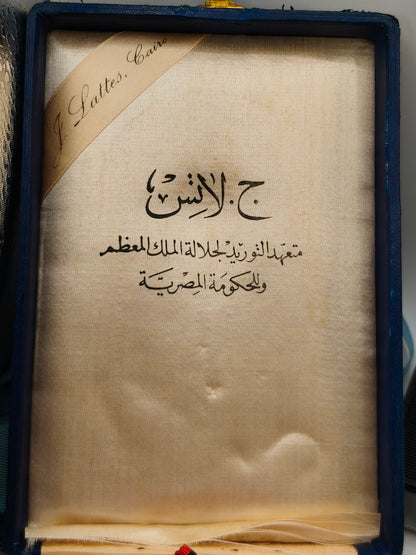 J. Lattes, Cairo
ج. لاتس
متعهد التوريد لجلالة الملك المعظم
وللحكومة المصرية